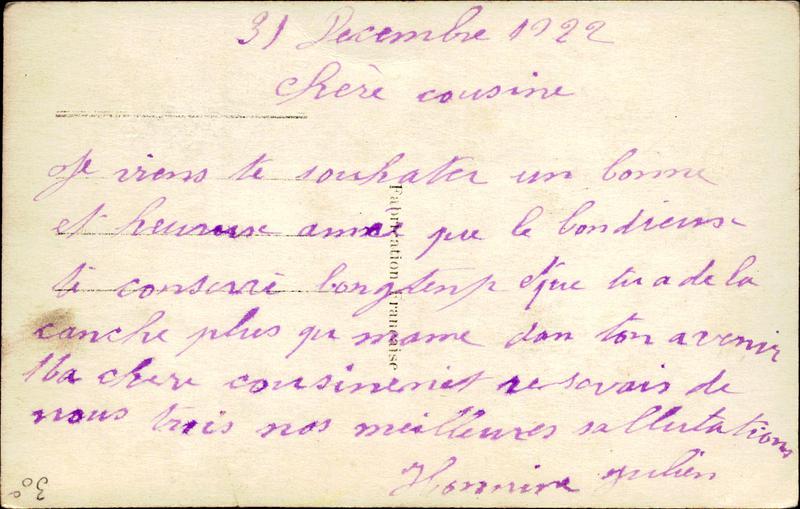 31 Decembre 1922
Chère cousine
Je viens te souhater un bonne
et heureuse anné que le bondieuse
te conservé longtemp et que tu a de la
canche plus qu mame dan ton avenir
Ma chere cousine resevais de
nous trois nos meilleures sallutations
Julien
Fabrication Française
30